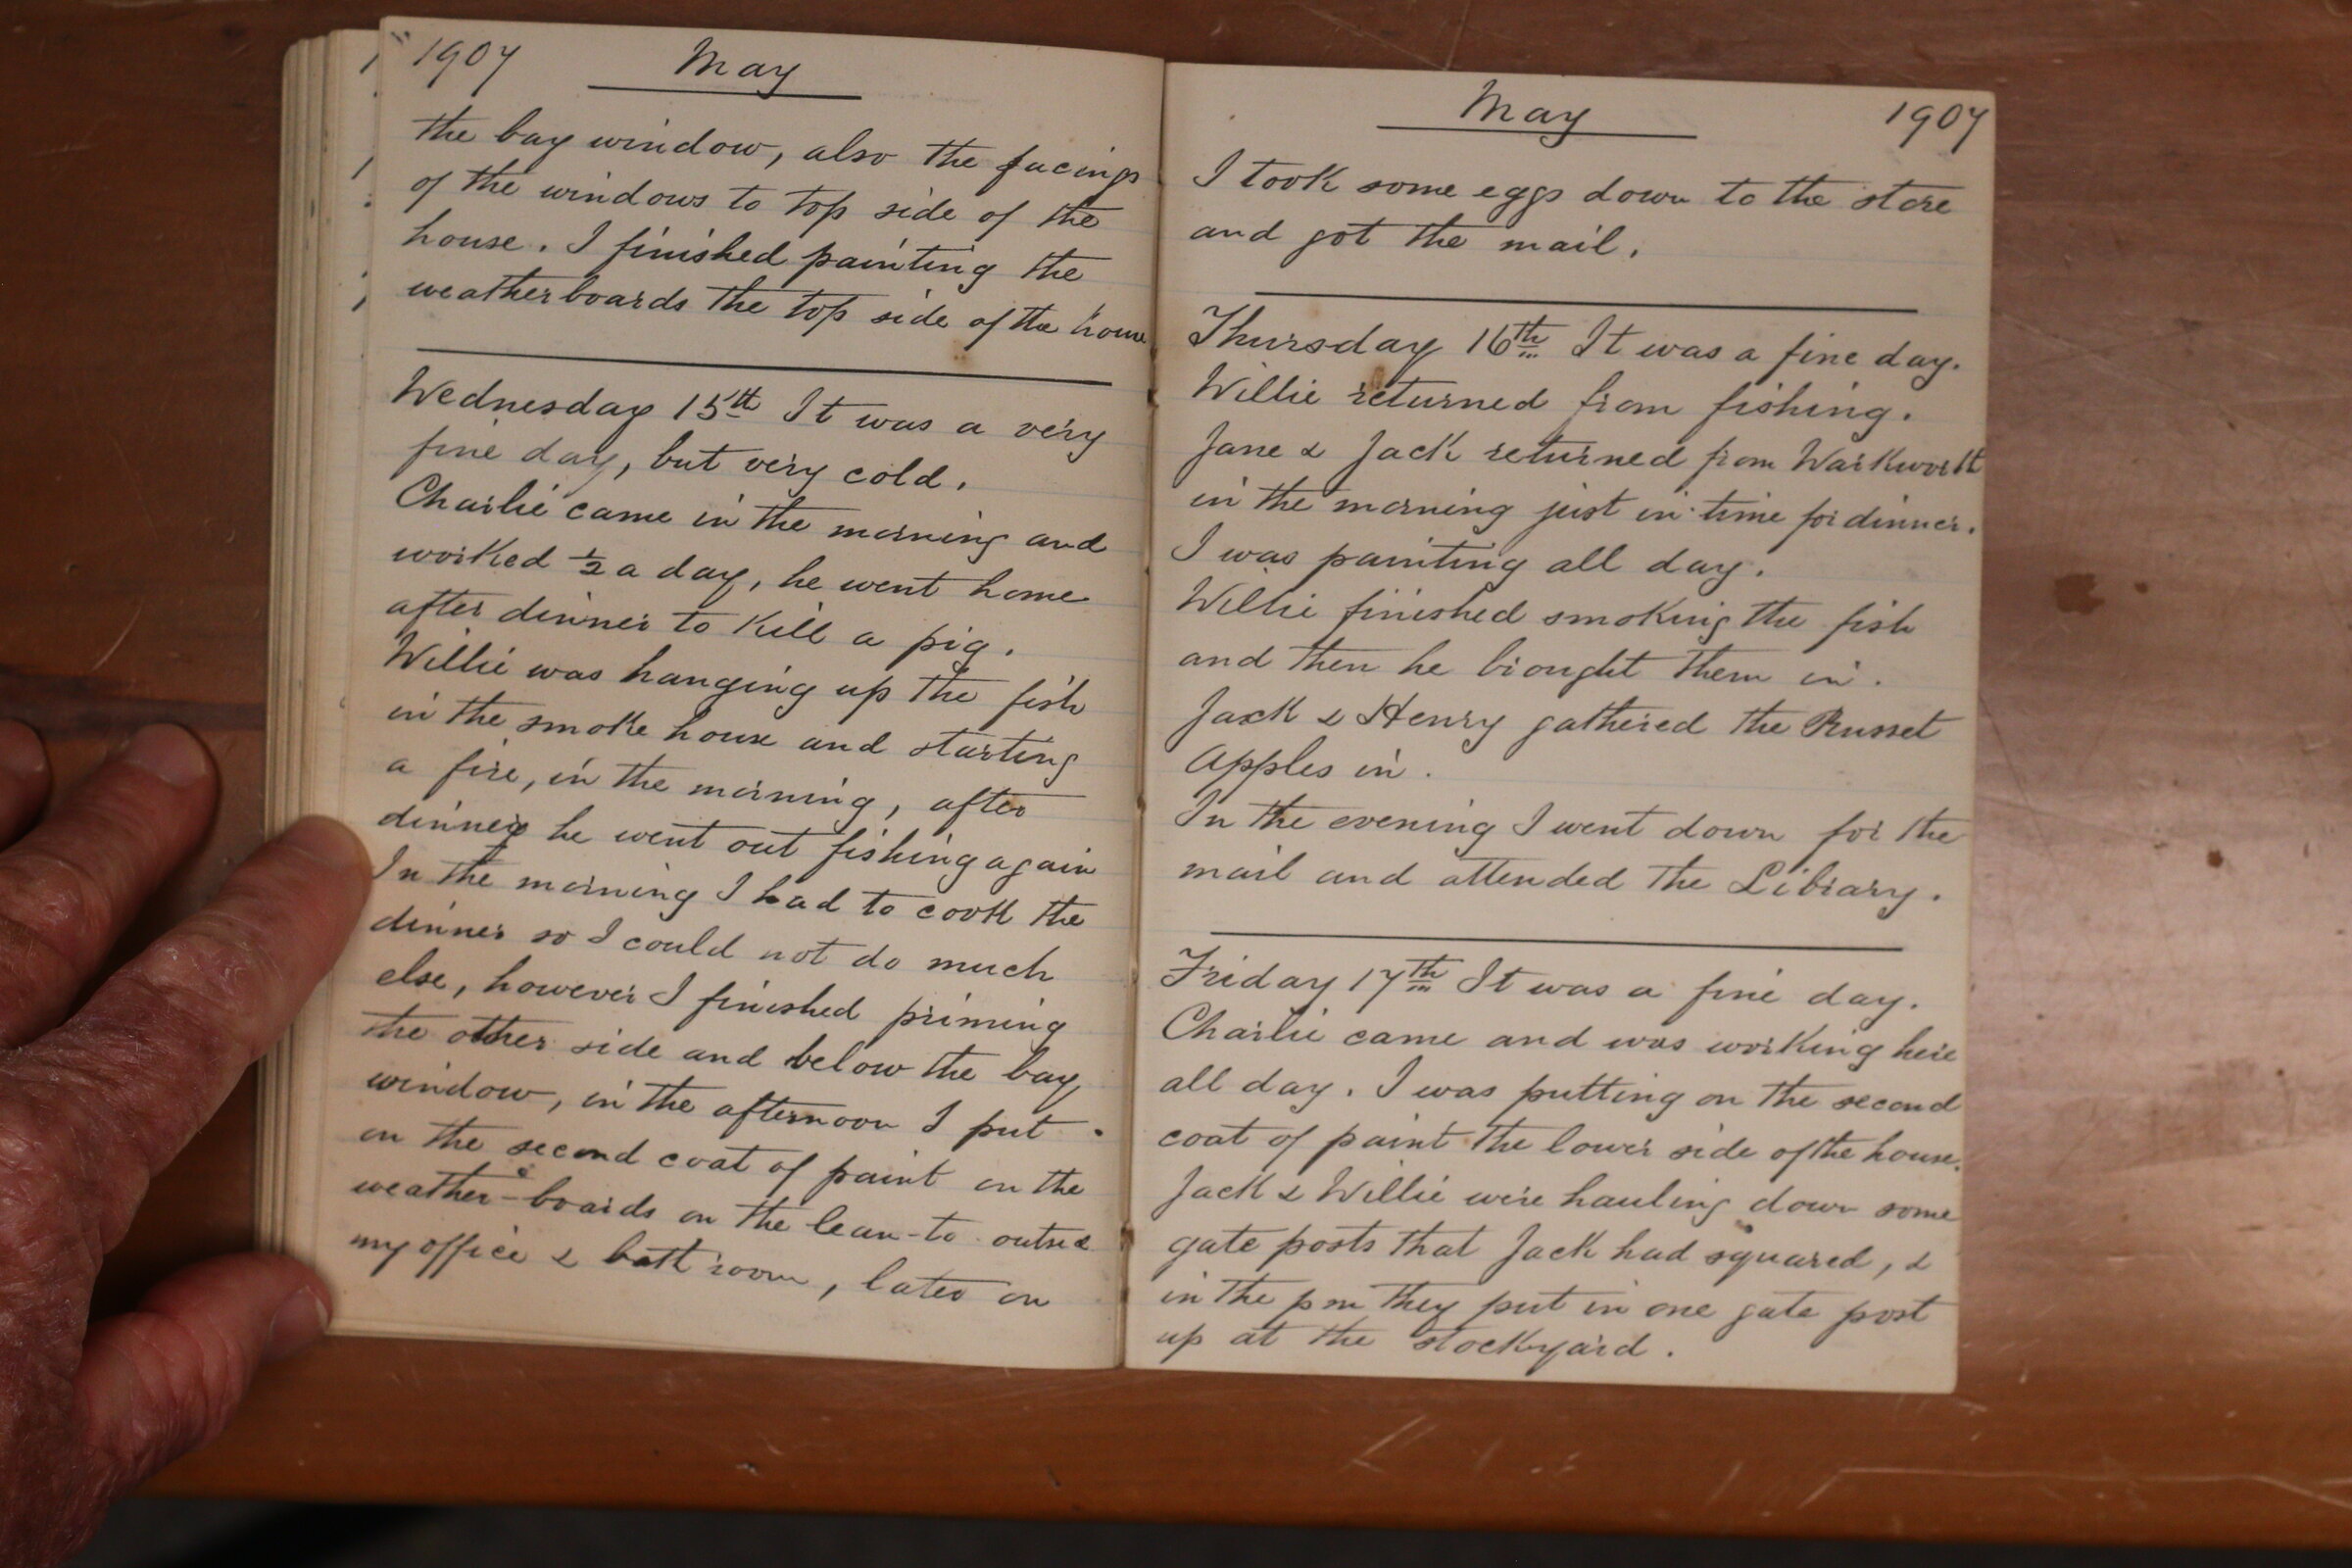 1907 May
the bay window, also the facings
of the windows to top side of the
house. I finished painting the
weatherboards the top side of the house
Wednesday 15th It was a very
fine day, but very cold.
Charlie came in the morning and
worked ½ a day, he went home
after dinner to kill a pig.
Willie was hanging up the fish
in the smoke house and starting
a fire, in the morning, after
dinner he went out fishing again
In the morning I had to cook the
dinner so I could not do much
else, however I finished priming
the other side and below the bay
window, in the afternoon I put
on the second coat of paint on the
weather-boards on the lean-to outside
my office & bath room, later on
May 1907
I took some eggs down to the store
and got the mail.
Thursday 16th It was a fine day.
Willie returned from fishing.
Jane & Jack returned from Warkworth
in the morning just in time for dinner.
I was painting all day.
Willie finished smoking the fish
and then he brought them in.
Jack & Henry gathered the Russet
Apples in.
In the evening I went down for the
mail and attended the Library.
Friday 17th It was a fine day.
Charlie came and was working here
all day. I was putting on the second
coat of paint the lower side of the house.
Jack & Willie were hauling down some
gate posts that Jack had squared, &
in the pm they put in one gate post
up at the stockyard.